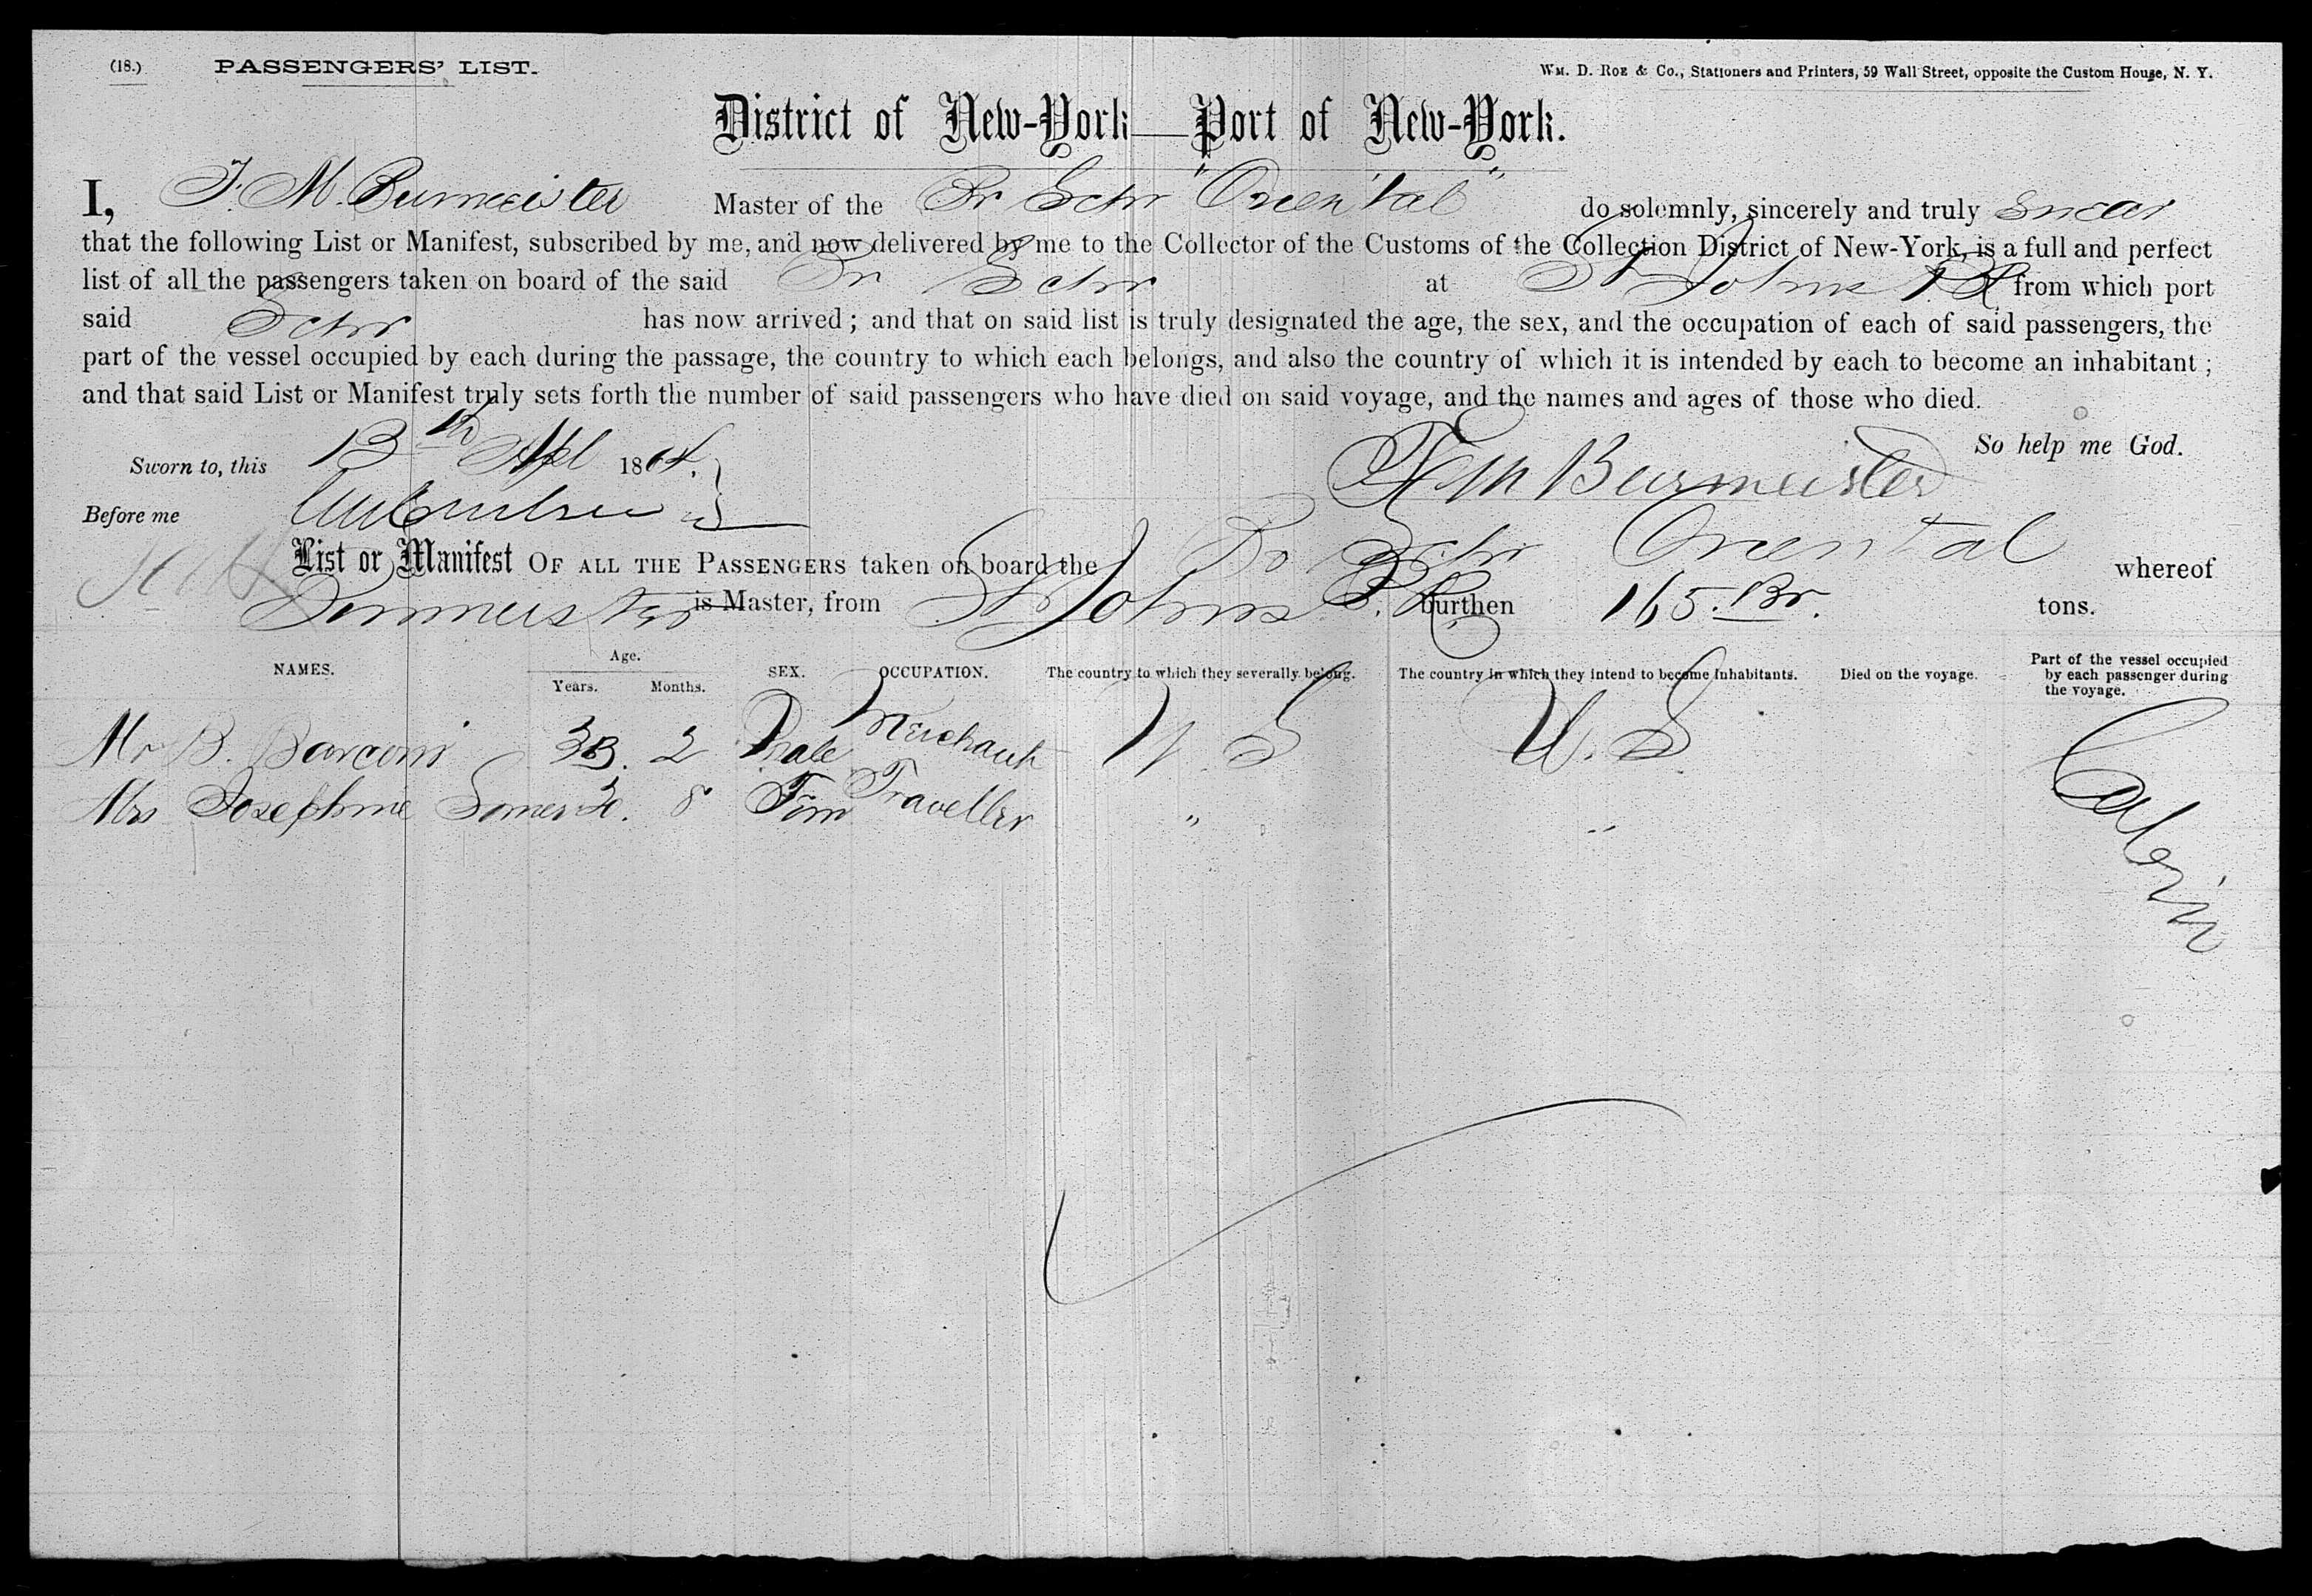 (18.) PASSENGERS' LIST. WM. D. ROE & CO., Stationers and Printers, 59 Wall Street, opposite the Custom House, N. Y.
District of New-York—Port of New-York.
I, F. M. Burmeister Master of the Br Schr "Oriental" do solemnly, sincerely and truly swear
that the following List or Manifest, subscribed by me, and now delivered by me to the Collector of the Customs of the Collection District of New-York, is a full and perfect
list of all the passengers taken on board of the said Br Schr at St Johns PR from which port
said Schr has now arrived; and that on said list is truly designated the age, the sex, and the occupation of each of said passengers, the
part of the vessel occupied by each during the passage, the country to which each belongs, and also the country of which it is intended by each to become an inhabitant;
and that said List or Manifest truly sets forth the number of said passengers who have died on said voyage, and the names and ages of those who died.
So help me God.
Sworn to, this 13th Apl 1864. F M Burmeister
Before me
List or Manifest OF ALL THE PASSENGERS taken on board the Br Schr Oriental whereof
Burmeister is Master, from St Johns P.R. burthen 165. Br. tons.
NAMES. Age. Years. Months. SEX. OCCUPATION. The country to which they severally belong. The country in which they intend to become inhabitants. Died on the voyage. Part of the vessel occupied by each passenger during the voyage.
Mr B. 33. 2 Male Merchant U. S U. S. Cabin
Mrs Josephine Somers 30. 8 Fem Traveller " "